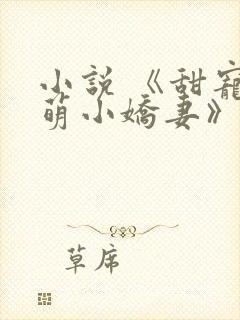 小説《甜寵
萌小嬌妻》
草席